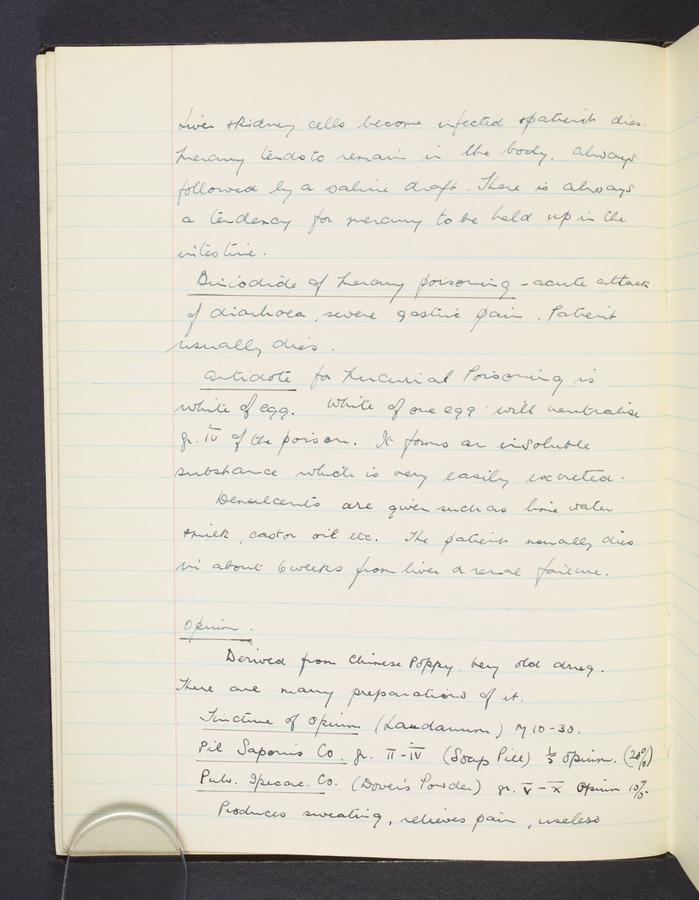 Liver & Kidney cells become infected & patient dies.
Mercury tends to remain in the body. Always
followed by a saline draft. There is always
a tendency for mercury to be held up in the
intestine.
Biniodide of Mercury poisoning - acute attack
of diarrhoea, severe gastric pain. Patient
usually dies.
Antidote for Mercurial Poisoning is
white of egg. White of one egg will neutralise
gr. IV of the poison. It forms an insoluble
substance which is very easily excreted.
Demulcents are given such as lime water
& milk, castor oil etc. The patient usually dies
in about 6 weeks from liver or renal failure.
Opium.
Derived from Chinese Poppy. Very old drug.
There are many preparations of it.
Tincture of Opium (Laudanum) ♏ 10-30.
Pil Saponis Co. gr. II-IV (Soap Pill) 1/5 Opium. (20%)
Pulv. Ipecac. Co. (Dover's Powder) gr. V-X Opium 10%.
Produces sweating, relieves pain, useless